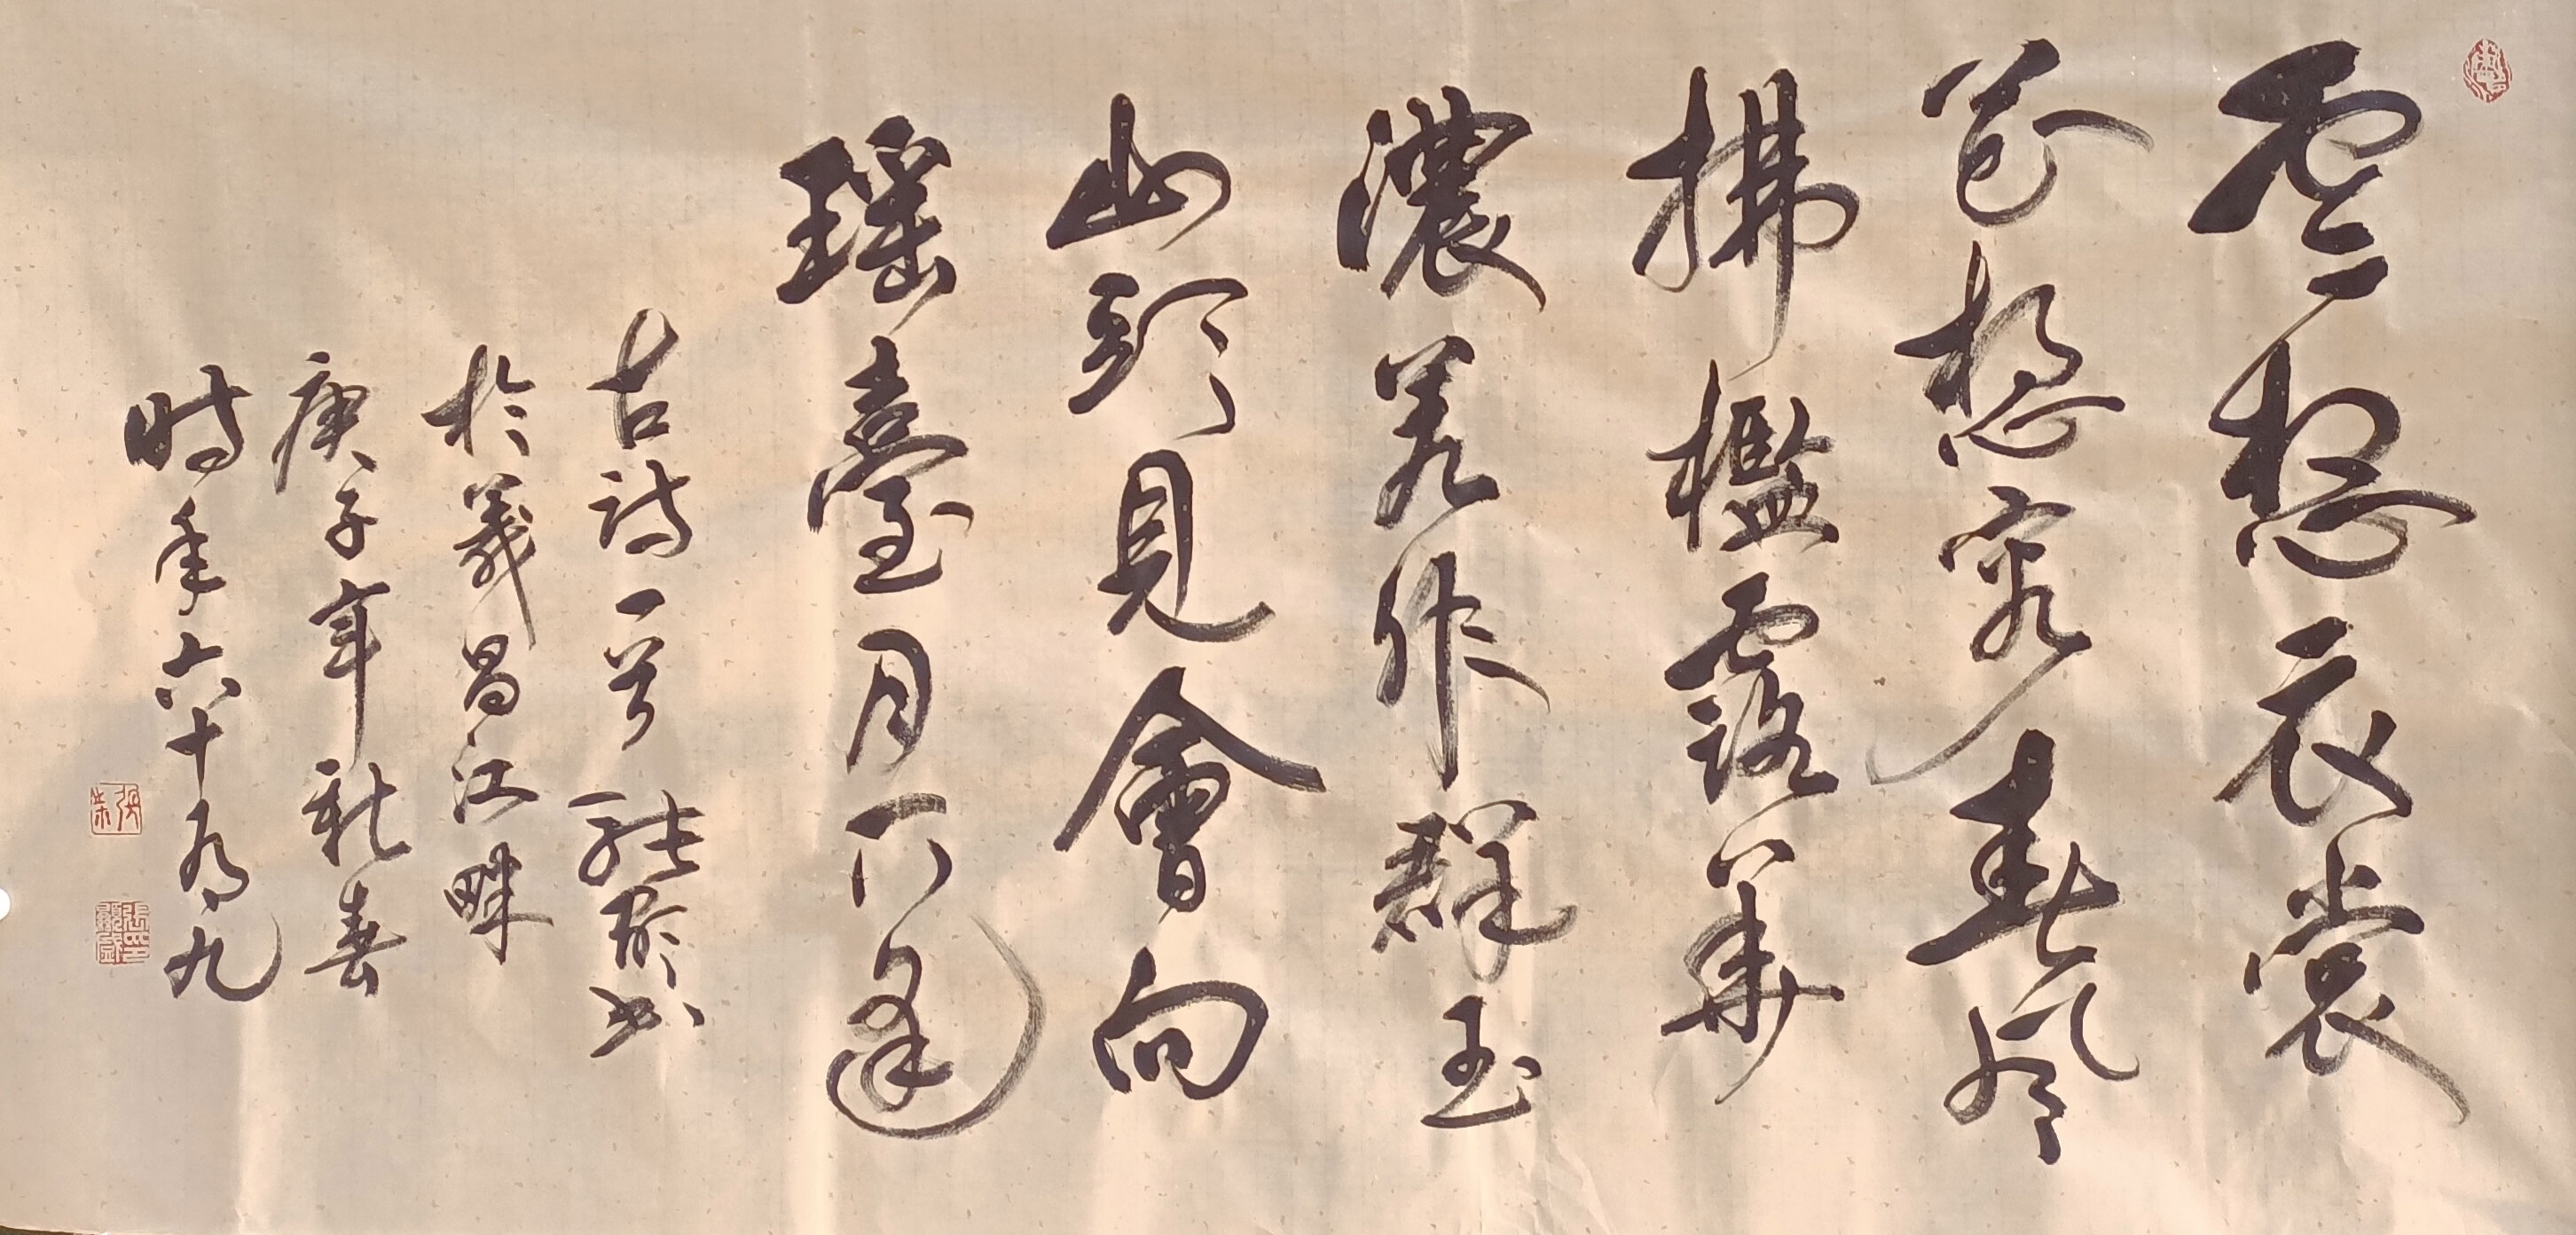 雲想衣裳
花想容春風
拂檻露華
濃若作群玉
山頭見會向
瑤臺月下逢
古詩一首 張 書
於義昌江畔
庚子年新春
時年六十有九